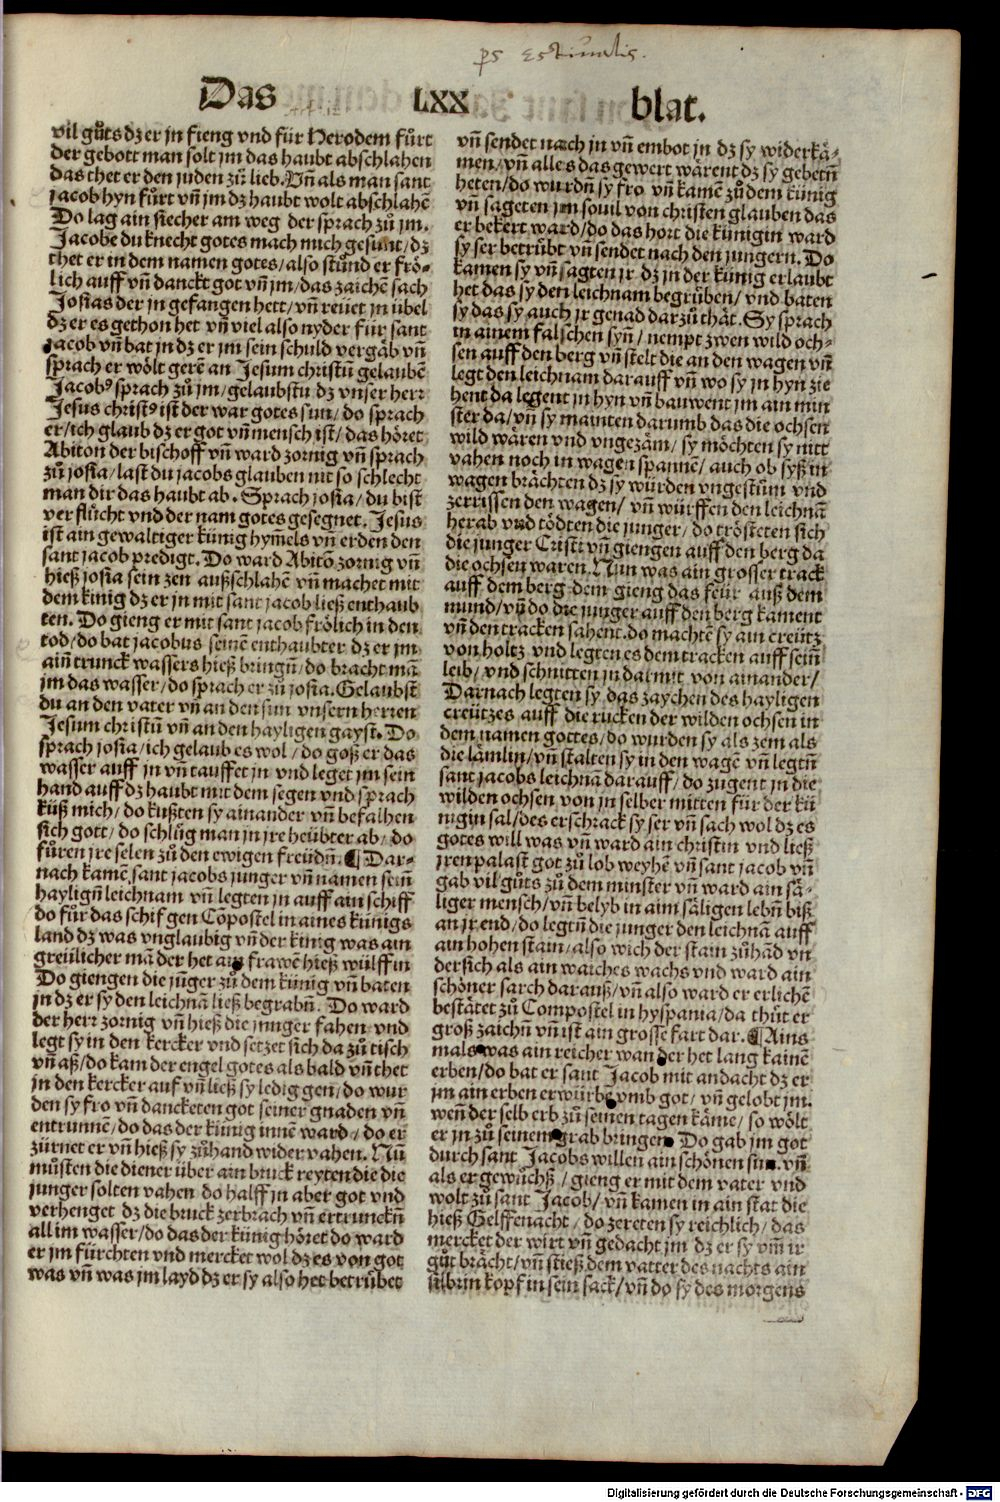 ps estiualis.
Das LXX blat.
vil gůts dz er jn fieng vnd für Herodem fůrt
der gebott man solt jm das haubt abschlahen
das thet er den juden zů lieb. Vn̄ als man sant
jacob hyn fůrt vn̄ jm dz haubt wolt abschlahē
Do lag ain siecher am weg der sprach zů jm.
Jacobe du knecht gotes mach mich gesunt/ dz
thet er in dem namen gotes/ also stůnd er frö⸗
lich auff vn̄ danckt got vn̄ jm/ das zaichē sach
Josias der jn gefangen hett/ vn̄ reüet in übel
dz er es gethon het vn̄ viel also nyder für sant
jacob vn̄ bat jn dz er jm sein schuld vergäb vn̄
sprach er wölt gerē an Jesum christū gelaubē
Jacobꝰ sprach zů jm/ gelaubstu dz vnser herr
Jesus christꝰ ist der war gotes sun/ do sprach
er/ ich glaub dz er got vn̄ mensch ist/ das höret
Abiton der bischoff vn̄ ward zornig vn̄ sprach
zů josia/ last du jacobs glauben nit so schlecht
man dir das haubt ab. Sprach josia/ du bist
verflůcht vnd der nam gotes gesegnet. Jesus
ist ain gewaltiger künig hym̄els vn̄ erden den
sant jacob predigt. Do ward Abitō zornig vn̄
hieß josia sein zen außschlahē vn̄ machet mit
dem kinig dz er jn mit sant jacob ließ enthaub
ten. Do gieng er mit sant jacob frölich in den
tod/ do bat jacobus seinē enthaubter dz er jm
ain̄ trunck wassers hieß bringn̄/ do bracht mā
jm das wasser/ do sprach er zů josia. Gelaubst
du an den vater vn̄ an den sun vnsern herren
Jesum christū vn̄ an den hayligen gayst. Do
sprach josia/ ich gelaub es wol/ do goß er das
wasser auff jn vn̄ tauffet jn vnd leget jm sein
hand auff dz haubt mit dem segen vnd sprach
küß mich/ do kußten sy ainander vn̄ befalhen
sich gott/ do schlůg man jn jre heübter ab/ do
fůren jre selen zů den ewigen freüdn̄. ¶ Dar⸗
nach kamē sant jacobs junger vn̄ namen sein̄
haylign̄ leichnam vn̄ legten jn auff ain schiff
do fůr das schif gen Cōpostel in aines künigs
land dz was vnglaubig vn̄ der kinig was ain
greülicher mā der het ain frawē hieß wülffin
Do giengen die jüger zů dem künig vn̄ baten
jn dz er sy den leichnā ließ begrabn̄. Do ward
der herr zornig vn̄ hieß die junger fahen vnd
legt sy in den kercker vnd setzet sich da zů tisch
vn̄ aß/ do kam der engel gotes als bald vn̄ thet
jn den kercker auf vn̄ ließ sy ledig gen/ do wur
den sy fro vn̄ dancketen got seiner gnaden vn̄
entrunnē/ do das der künig innē ward/ do er
zürnet er vn̄ hieß sy zůhand wider vahen. Nū
můsten die diener über ain bruck reyten die die
junger solten vahen do halff jn aber got vnd
verhenget dz die bruck zerbrach vn̄ ertrunckn̄
all im wasser/ do das der künig höret do ward
er jm fürchten vnd mercket wol dz es von got
was vn̄ was jm layd dz er sy also het betrübet
vn̄ sendet nach jn vn̄ embot jn dz sy widerkä⸗
men/ vn̄ alles das gewert wärent dz sy gebetn̄
heten/ do wurdn̄ sy fro vn̄ kamē zů dem künig
vn̄ sageten jm souil von christen glauben das
er bekert ward/ do das hort die künigin ward
sy ser betrübt vn̄ sendet nach den jungern. Do
kamen sy vn̄ sagten jr dz jn der künig erlaubt
het das sy den leichnam begrüben/ vnd baten
sy das sy auch jr genad darzů thät. Sy sprach
in ainem falschen syn̄/ nempt zwen wild och⸗
sen auff den berg vn̄ stelt die an den wagen vn̄
legt den leichnam darauff vn̄ wo sy in hyn zie
hent da legent jn hyn vn̄ bauwent jm ain min
ster da/ vn̄ sy mainten darumb das die ochsen
wild wären vnd vngezäm/ sy möchten sy nitt
vahen noch in wagen spannē/ auch ob syß in
wagen brächten dz sy würden vngestüm vnd
zerrissen den wagen/ vn̄ würffen den leichnā
herab vnd tödten die junger/ do trösteten sich
die junger Cristi vn̄ giengen auff den berg da
die ochsen waren. Nun was ain grosser track
auff dem berg dem gieng das feür auß dem
mund/ vn̄ do die junger auff den berg kament
vn̄ den tracken sahent. do machtē sy ain creütz
von holtz vnd legten es dem tracken auff sein̄
leib/ vnd schnitten jn darmit von ainander/
Darnach legten sy das zaychen des hayligen
creützes auff die rucken der wilden ochsen in
dem namen gottes/ do wurden sy als zem als
die lämlin/ vn̄ stalten sy in den wagē vn̄ legtn̄
sant jacobs leichnā darauff/ do zugent jn die
wilden ochsen von jn selber mitten für der kü
nigin sal/ des erschrack sy ser vn̄ sach wol dz es
gotes will was vn̄ ward ain christin vnd ließ
jren palast got zů lob weyhē vn̄ sant jacob vn̄
gab vil gůts zů dem minster vn̄ ward ain sä⸗
liger mensch/ vn̄ belyb in aim säligen lebn̄ biß
an jr end/ do legtn̄ die junger den leichnā auff
ain hohen stain/ also wich der stain zůhād vn̄
der sich als ain waiches wachs vnd ward ain
schöner sarch darauß/ vn̄ also ward er erlichē
bestätet zů Compostel in hyspania/ da thůt er
groß zaichn̄ vn̄ ist ain grosse fart dar. ¶ Ains
mals was ain reicher man der het lang kainē
erben/ do bat er sant Jacob mit andacht dz er
jm ain erben erwürbe vmb got/ vn̄ gelobt jm.
wen̄ der selb erb zů seinen tagen käme/ so wölt
er jn zů seinem grab bringen. Do gab jm got
durch sant Jacobs willen ain schönen sun. vn̄
als er gewůchß/ gieng er mit dem vater vnd
wolt zů sant Jacob/ vn̄ kamen in ain stat die
hieß Gelffenacht/ do zereten sy reichlich/ das
mercket der wirt vn̄ gedacht jm dz er sy vm̄ ir
gůt brächt/ vn̄ stieß dem vatter des nachts ain
silbrin kopf in sein sack/ vn̄ do sy des morgens
Digitalisierung gefördert durch die Deutsche Forschungsgemeinschaft - DFG